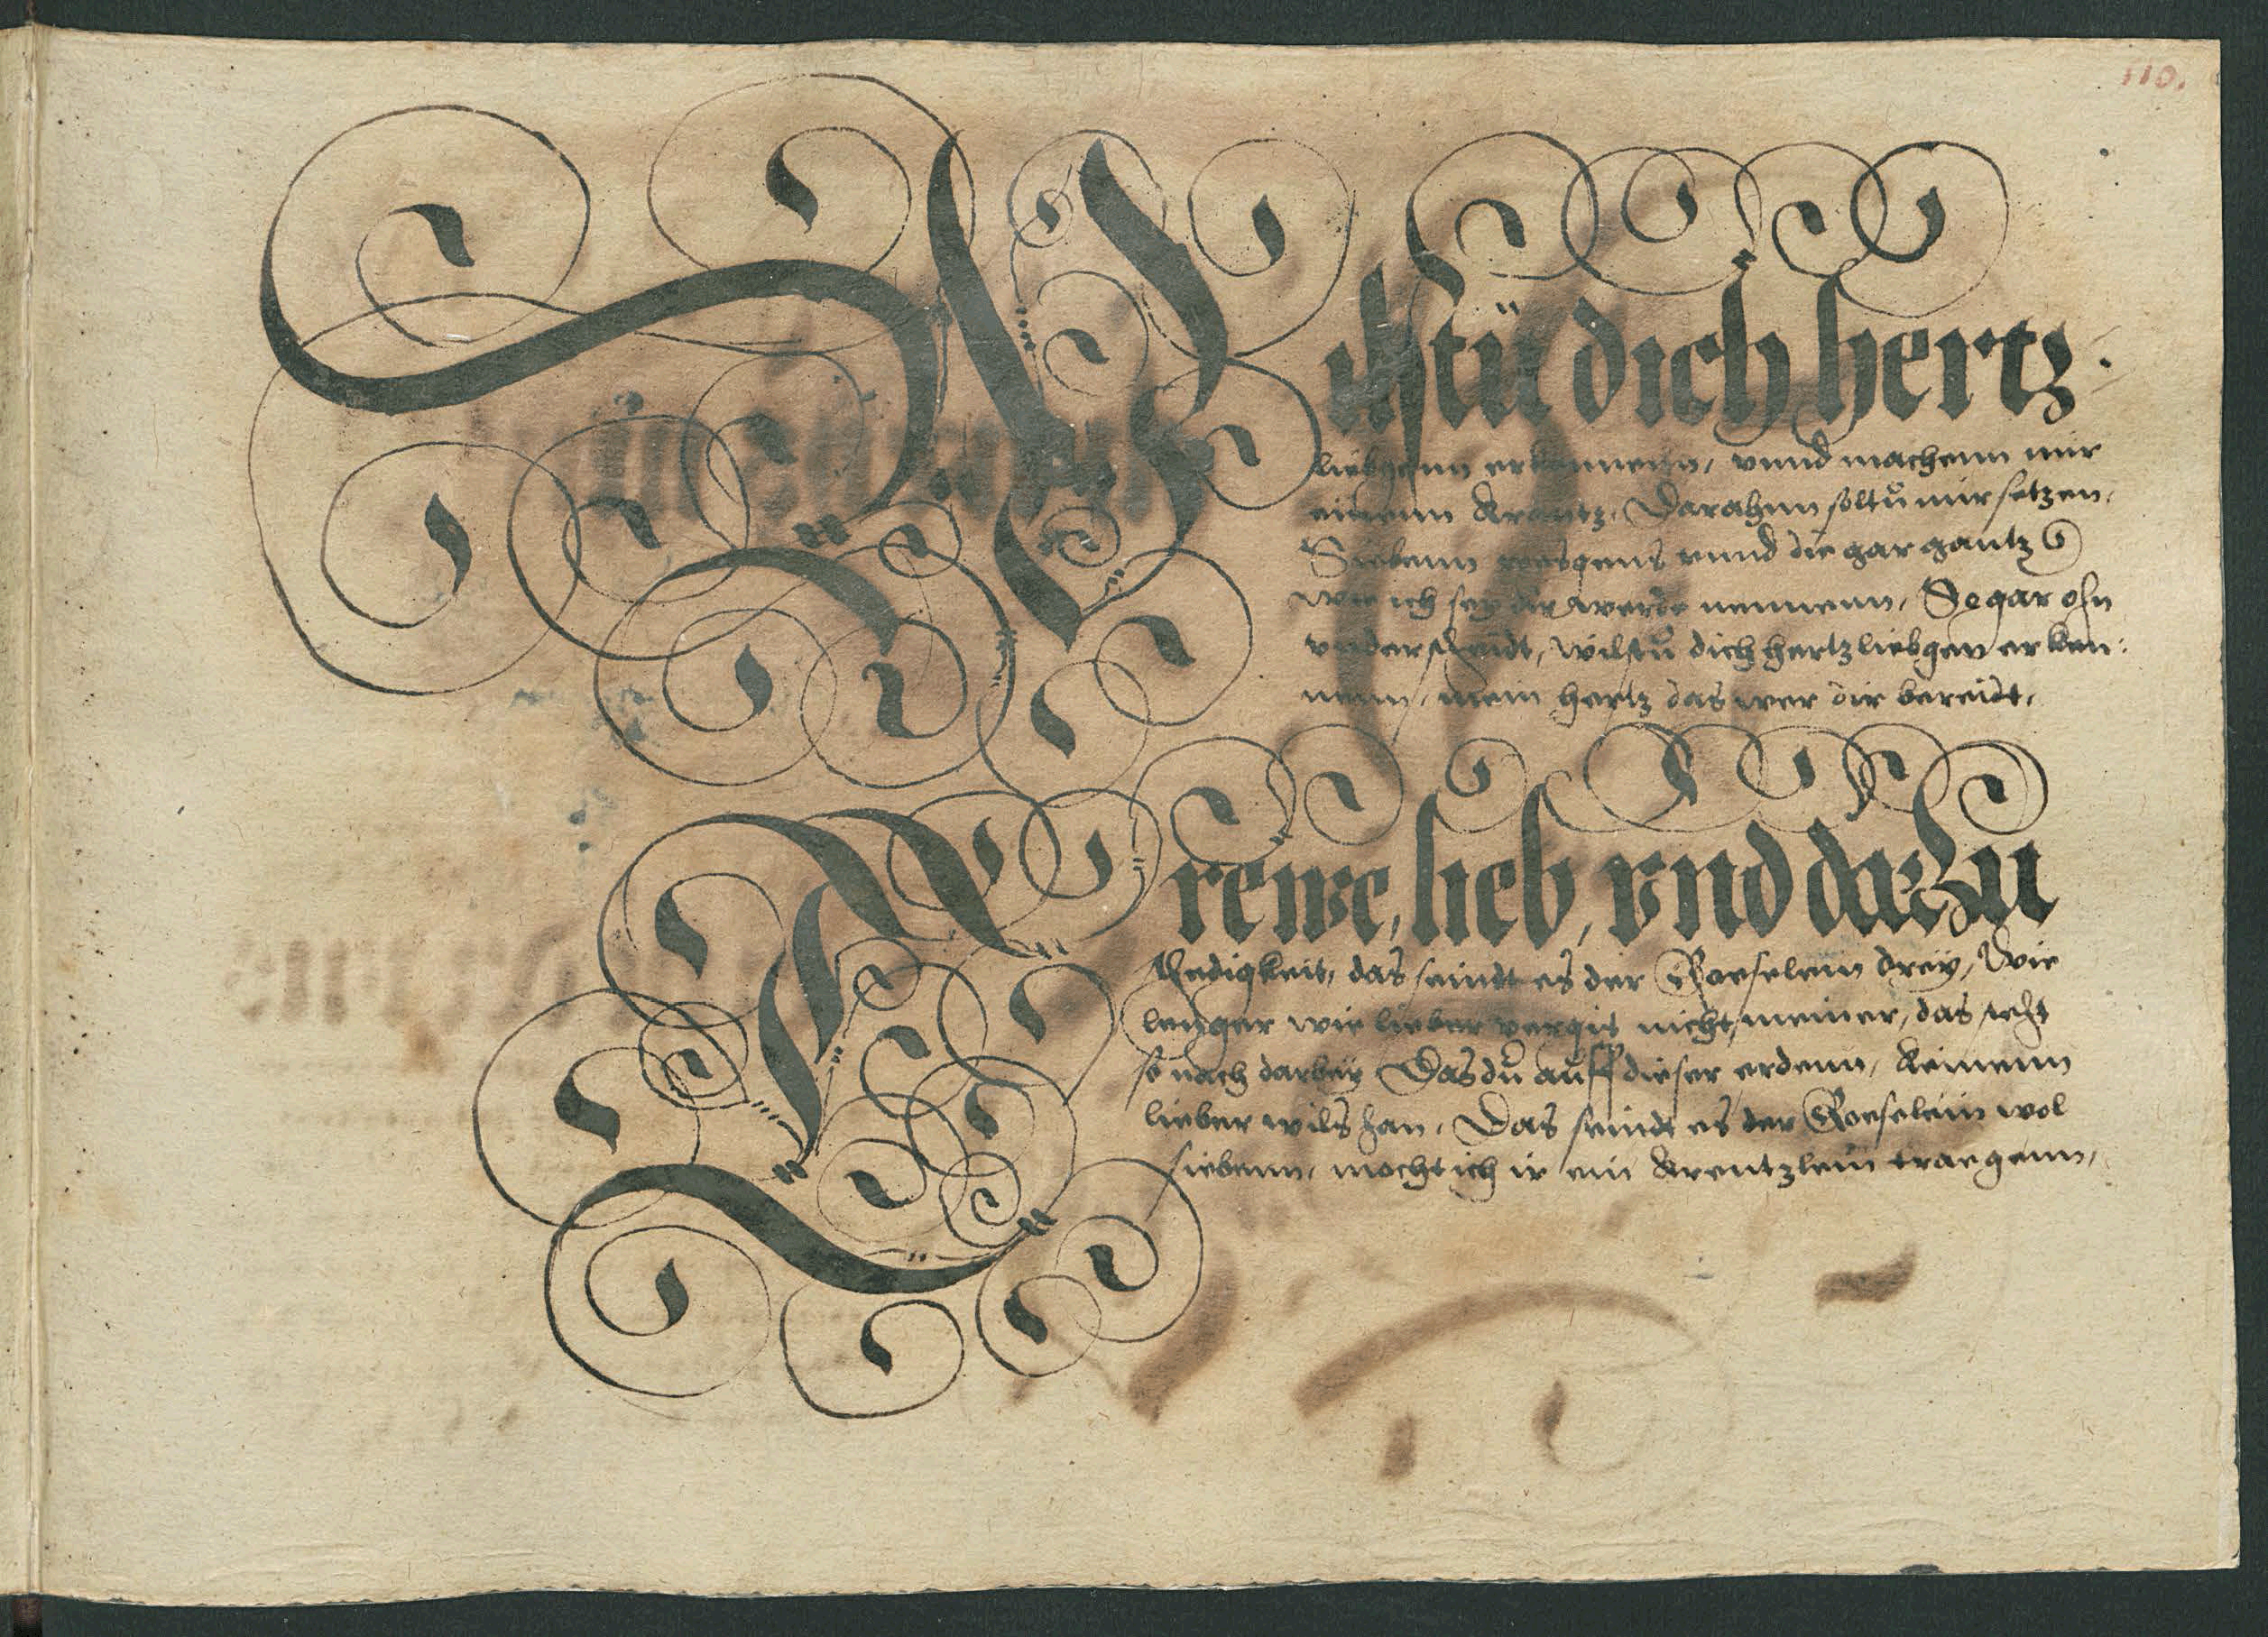 110.
Wilstü dich hertz.
liebgenn erkennenn, vnnd machenn mir
einenn Krantz, Darahnn soltů mir setzen,
Siebenn roesgens vnnd die gar gantz
wie ich sey dir werde nennenn, So gar ohn
vnderscheidt, wilstů dich hertz liebgen erken:
nenn, mein hertz das wer dir bereidt,
Trewe, lieb, vnd darzu
stedigkeit, das seindt es der Roeselein dreÿ, Wie
lenger wie lieber vergis nicht meiner, das steht
so nach darbeÿ Das dů auff dieser erdenn, Keinenn
lieber wils han, Das seindt es der Roeselein wol
siebenn, mocht ich ir ein Krentzlein traegenn,